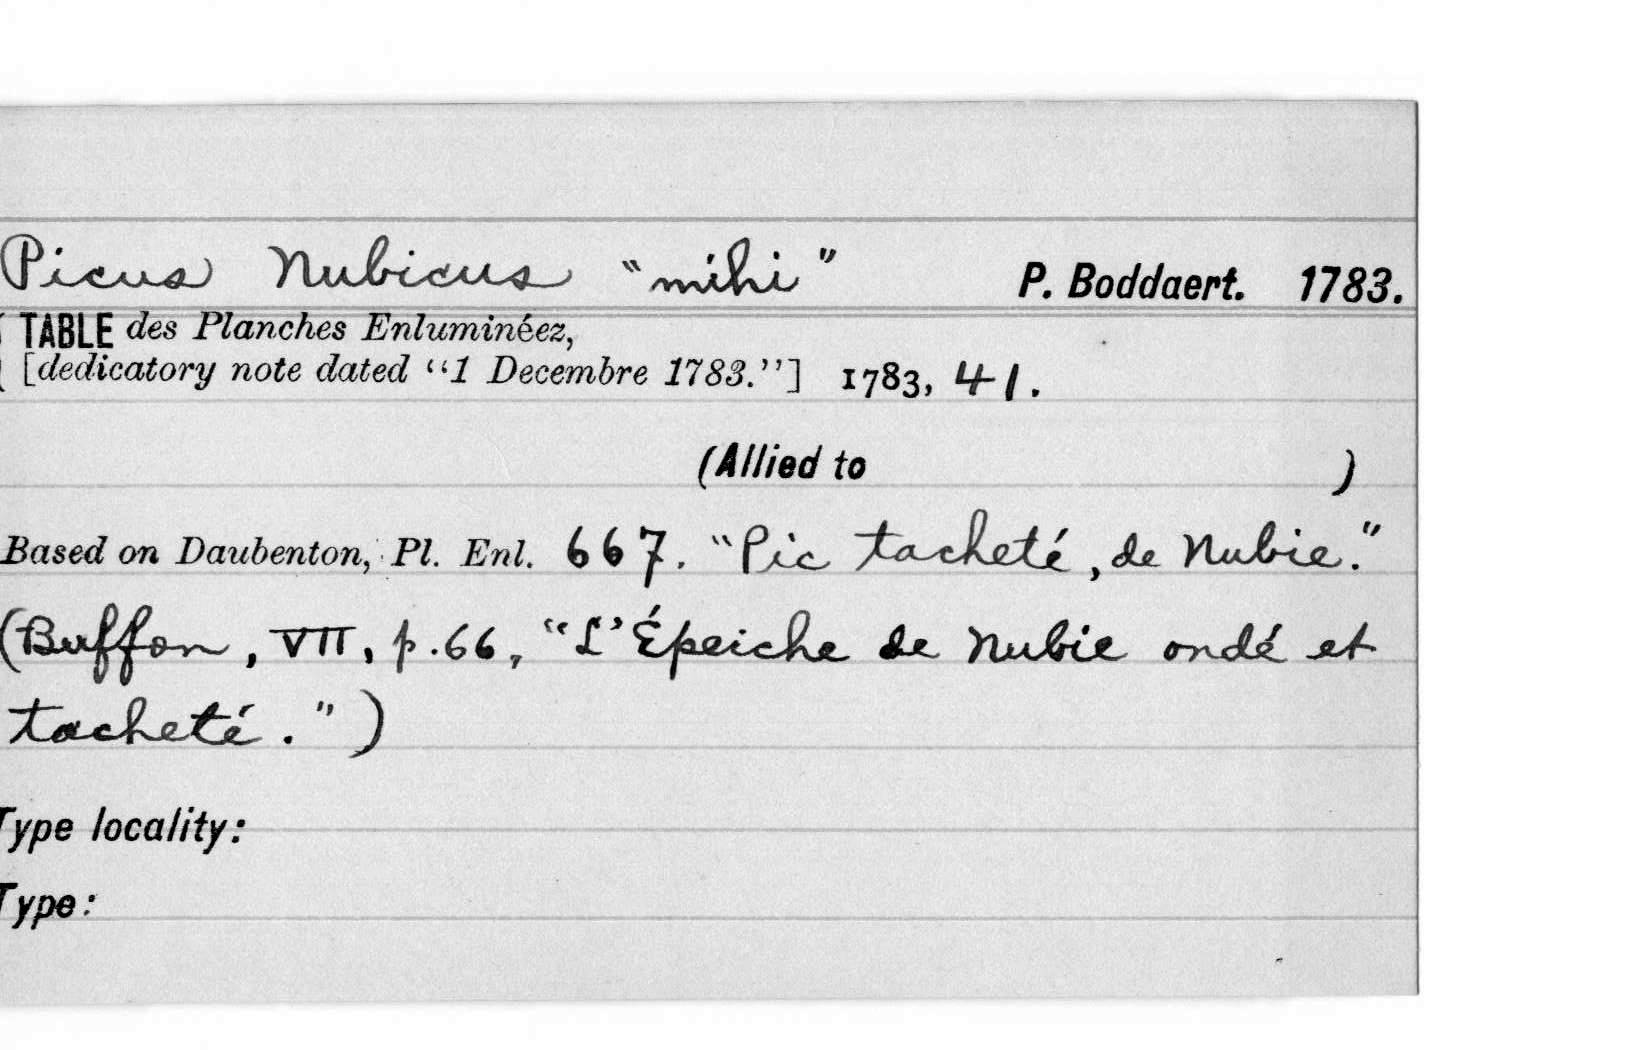 Picus Nubicus "mihi" P. Boddaert. 1783.
( TABLE des Planches Enluminéez,
( [dedicatory note dated "1 Decembre 1783."] 1783, 41.
(Allied to )
Based on Daubenton, Pl. Enl. 667. "Pic tacheté, de Nubie."
(Buffon, VII, p.66, "L'Épeiche de Nubie ondé et
tacheté.")
Type locality:
Type: